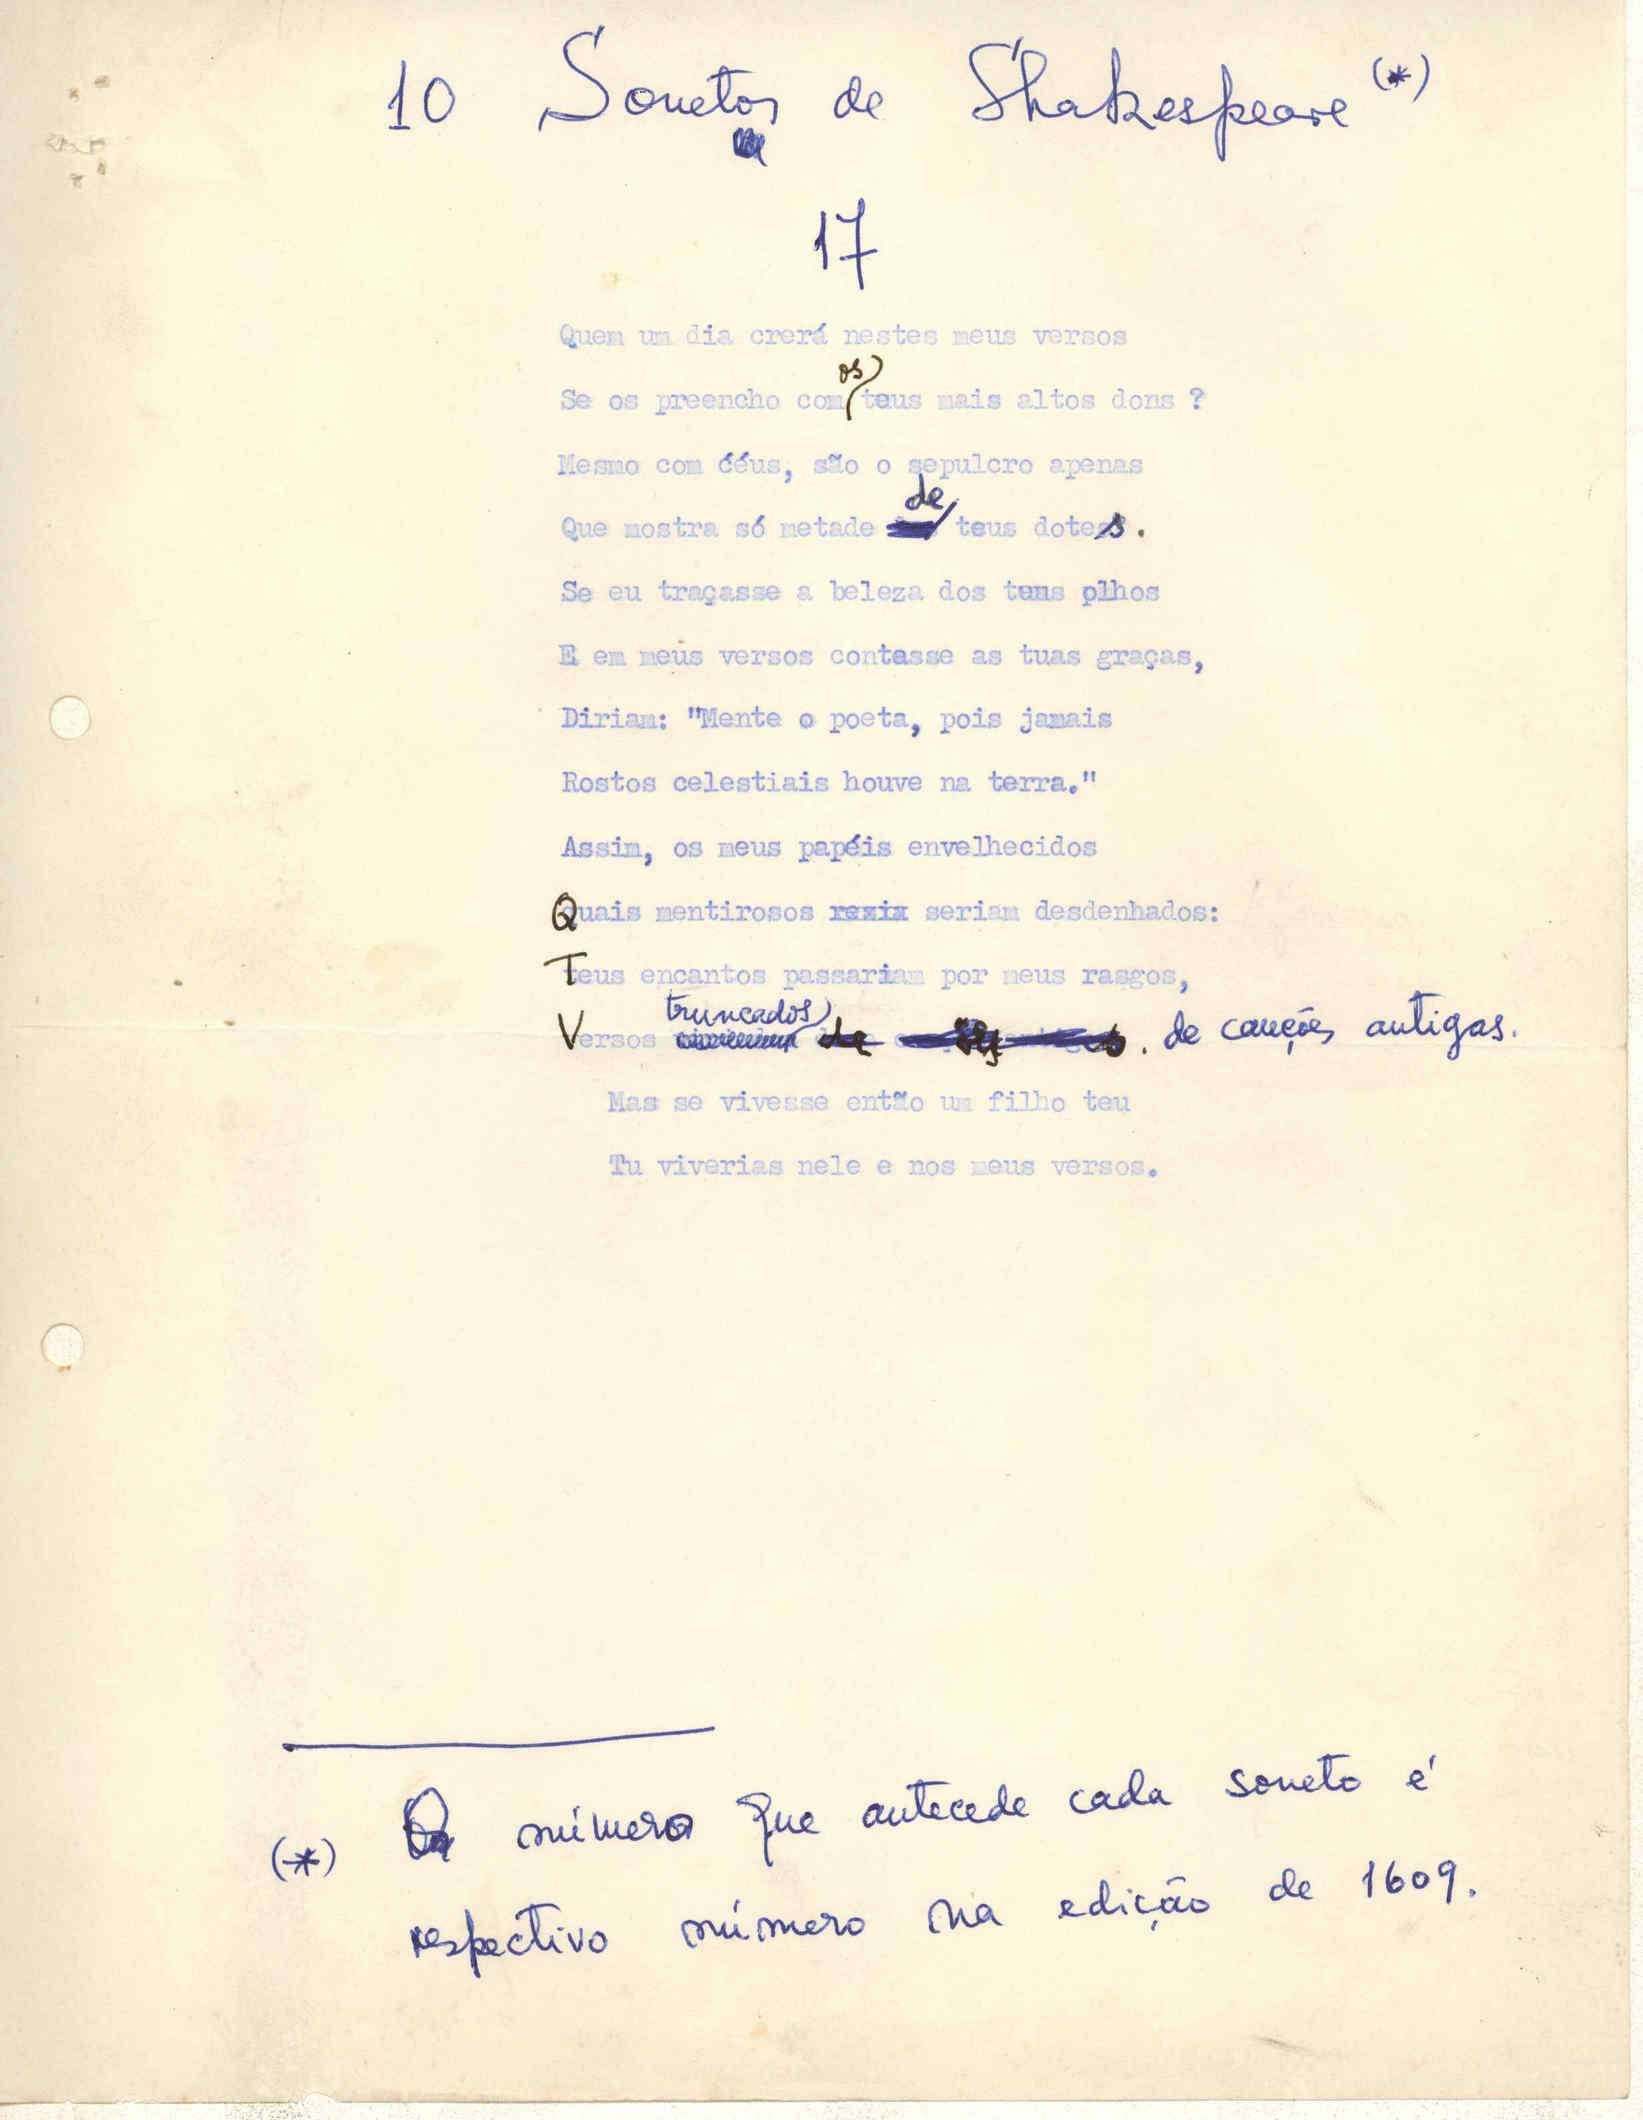 10 Sonetos de Shakespeare (*)
17
Quem um dia crerá nestes meus versos
Se os preencho com os teus mais altos dons ?
Mesmo com céus, são o sepulcro apenas
Que mostra só metade de teus dotes.
Se eu traçasse a beleza dos teus olhos
E em meus versos contasse as tuas graças,
Diriam: "Mente o poeta, pois jamais
Rostos celestiais houve na terra."
Assim, os meus papéis envelhecidos
Quais mentirosos seriam desdenhados:
Teus encantos passariam por meus rasgos,
Versos truncados de canções antigas.
Mas se vivesse então um filho teu
Tu viverias nele e nos meus versos.
(*) O número que antecede cada soneto é
respectivo número na edição de 1609.